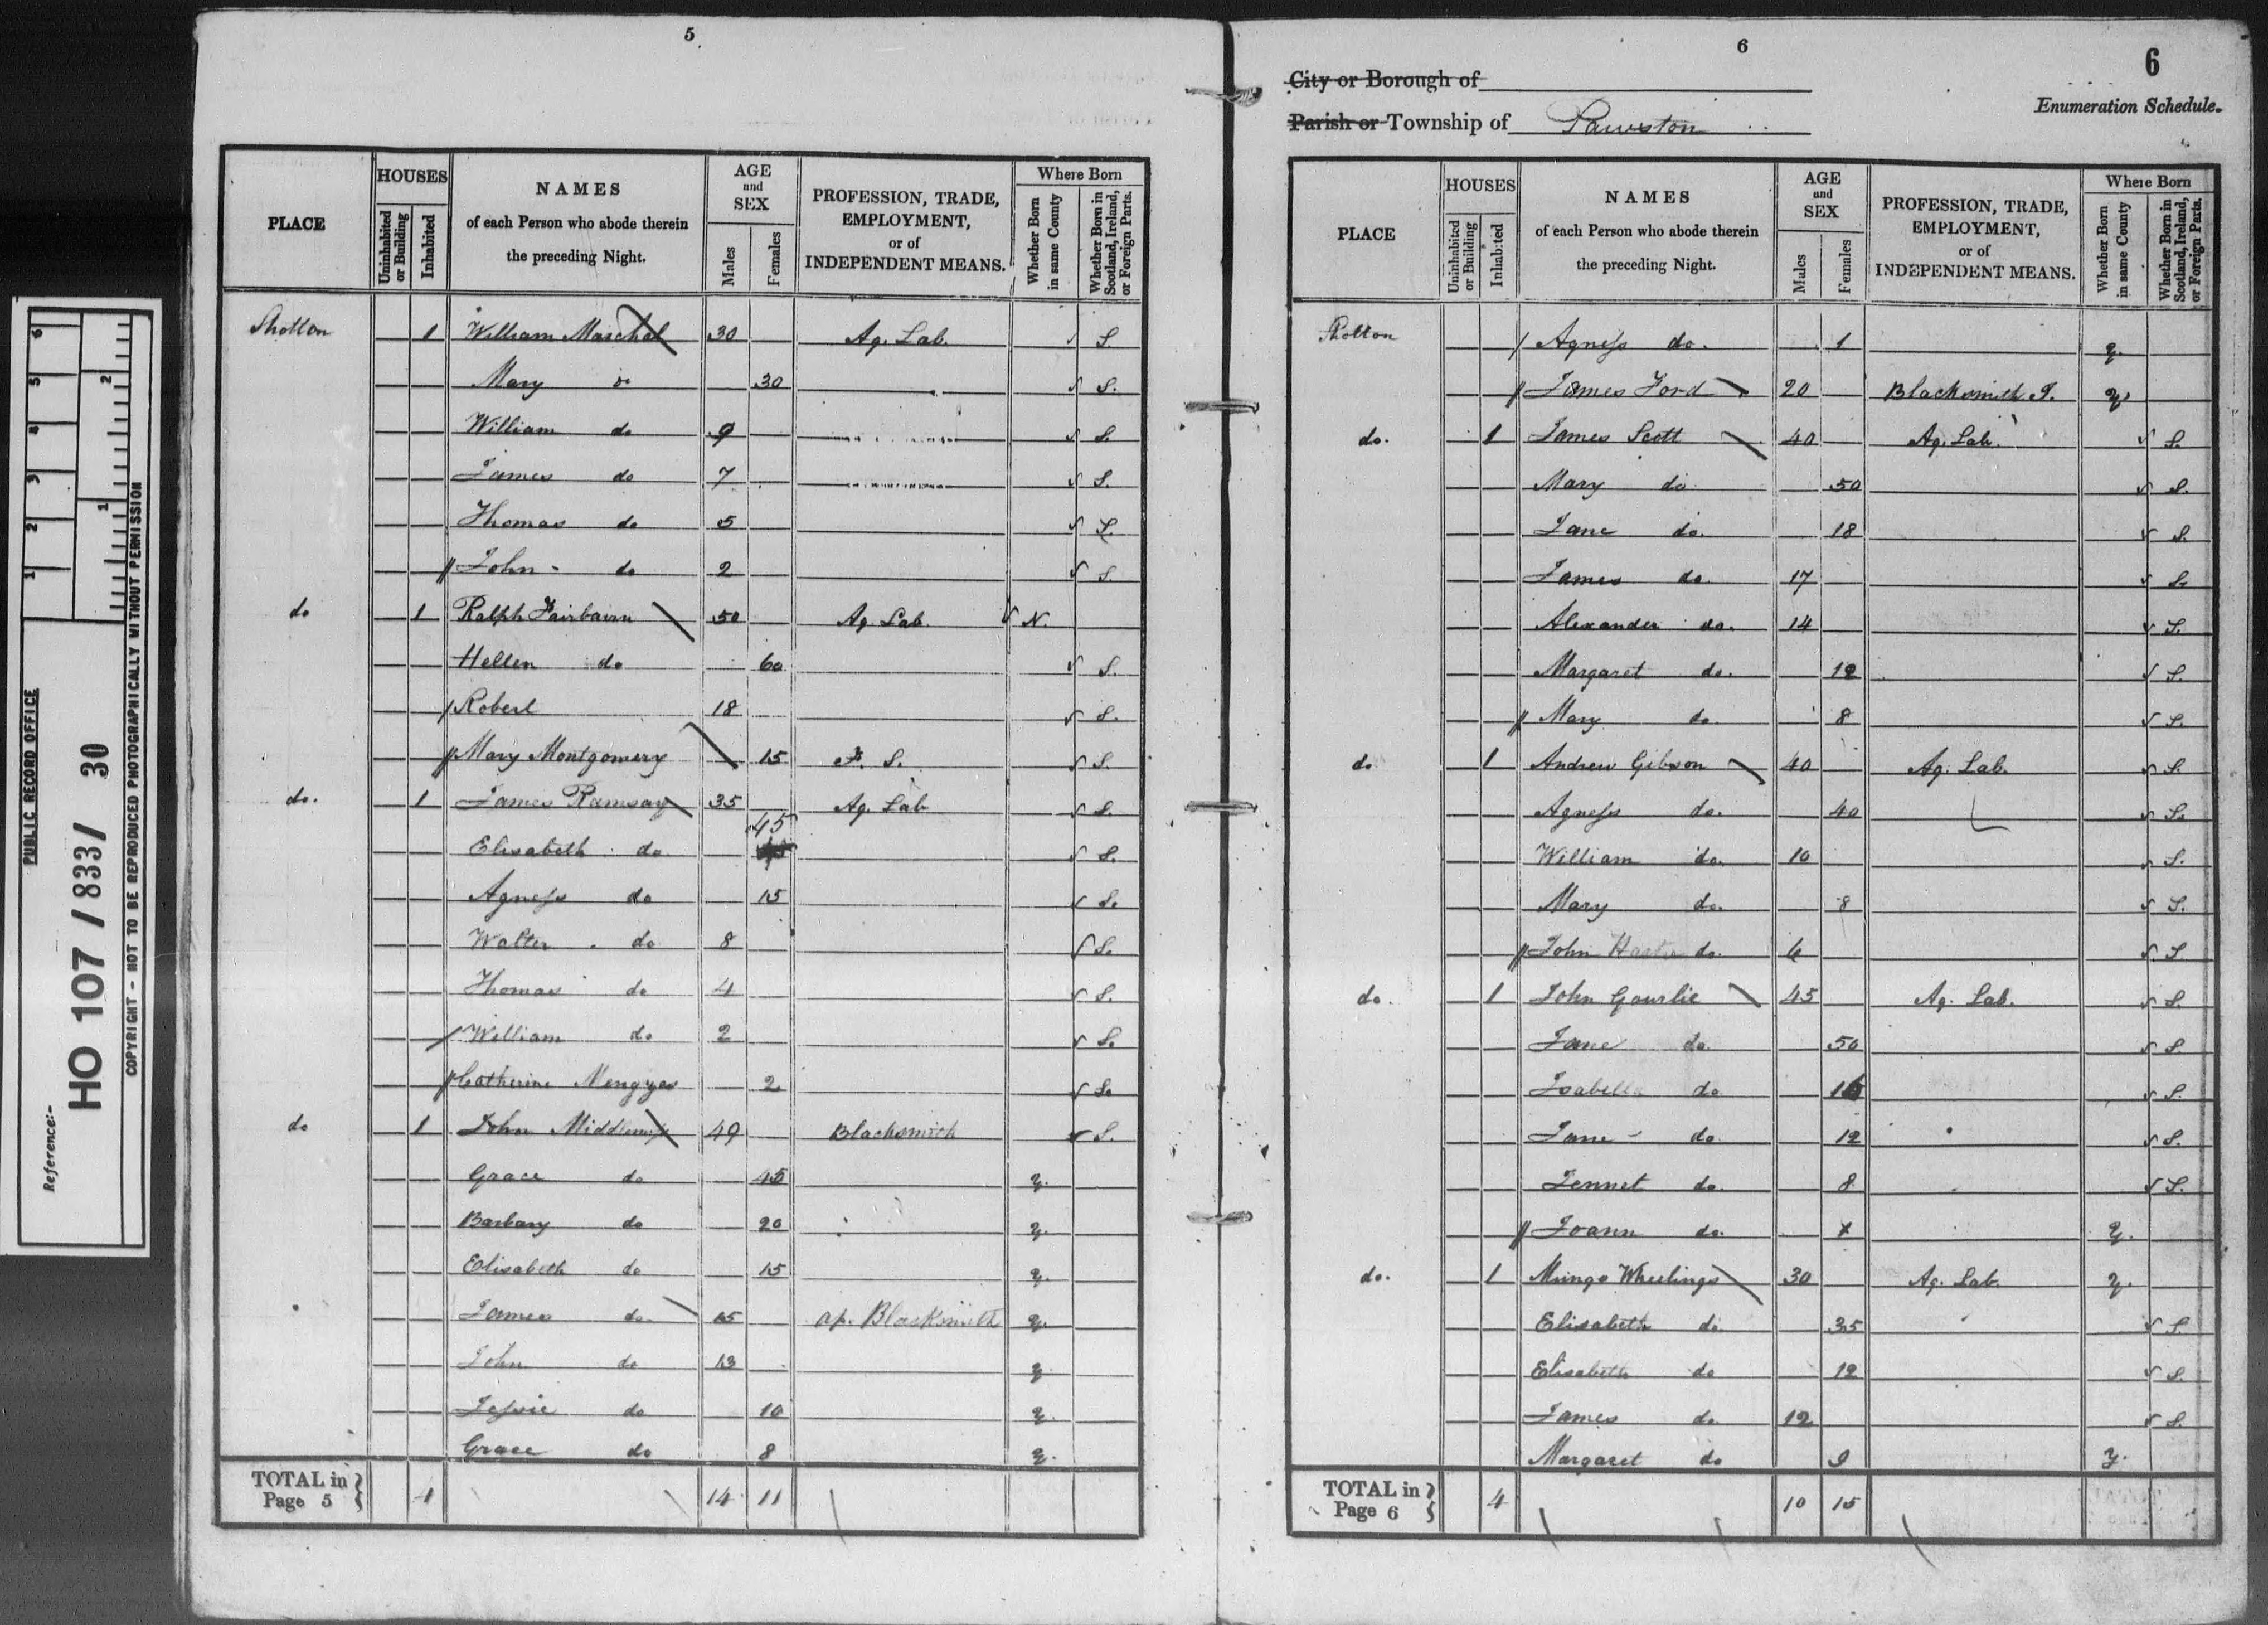 5
PLACE HOUSES Uninhabited or Building Inhabited NAMES of each Person who abode therein the preceding Night. AGE and SEX Males Females PROFESSION, TRADE, EMPLOYMENT, or of INDEPENDENT MEANS. Where Born Whether Born in same County Whether Born in Scotland, Ireland, or Foreign Parts.
Shotton 1 William Marchal 30 Ag. Lab. S.
Mary do 30 S.
William do 9 S.
James do 7 S.
Thomas do 5 S.
John do 2 S.
do 1 Ralph Fairbairn 50 Ag. Lab. N.
Hellen do 60 S.
Robert 18 S.
Mary Montgomery 15 F. S. S.
do. 1 James Ramsay 35 Ag. Lab S.
Elisabeth do 45 S.
Agness do 15 S.
Walter do 8 S.
Thomas do 4 S.
William do 2 S.
Catherine 2 S.
do 1 John 49 Blacksmith S.
Grace do 45 y.
Barbary do 20 y.
Elisabeth do 15 y.
James do 15 Ap. Blacksmith y.
John do 13 y
Jessie do 10 y.
Grace do 8 y.
TOTAL in Page 5 14 11
6
6
City or Borough of
Enumeration Schedule.
Parish or Township of Pawston
PLACE HOUSES Uninhabited or Building Inhabited NAMES of each Person who abode therein the preceding Night. AGE and SEX Males Females PROFESSION, TRADE, EMPLOYMENT, or of INDEPENDENT MEANS. Where Born Whether Born in same County Whether Born in Scotland, Ireland, or Foreign Parts.
Shotton Agness do. 1 y.
James Ford 20 Blacksmith J. y.
do. 1 James Scott 40 Ag. Lab. S.
Mary do 50 S.
Jane do. 18 S.
James do. 17 S.
Alexander do. 14 S.
Margaret do. 12 S.
Mary do 8 S.
do 1 Andrew Gibson 40 Ag. Lab. S.
Agness do. 40 S.
William do. 10 S.
Mary do. 8 S.
John do. 6 S.
do. 1 John Gourlie 45 Ag. Lab. S.
Jane do. 50 S.
Isabella do. S.
Jane do. 12 S.
Jennet do. 8 S.
Joann do. y.
do. 1 Mungo Wheelings 30 Ag. Lab. y.
Elisabeth do. 35 S.
Elisabeth do 12 S.
James do. 12 S.
Margaret do 9 y.
TOTAL in Page 6 4 10 15
PUBLIC RECORD OFFICE
Reference:-
HO 107/833/ 30
COPYRIGHT - NOT TO BE REPRODUCED PHOTOGRAPHICALLY WITHOUT PERMISSION
1 2 3 4 5 6
1 2